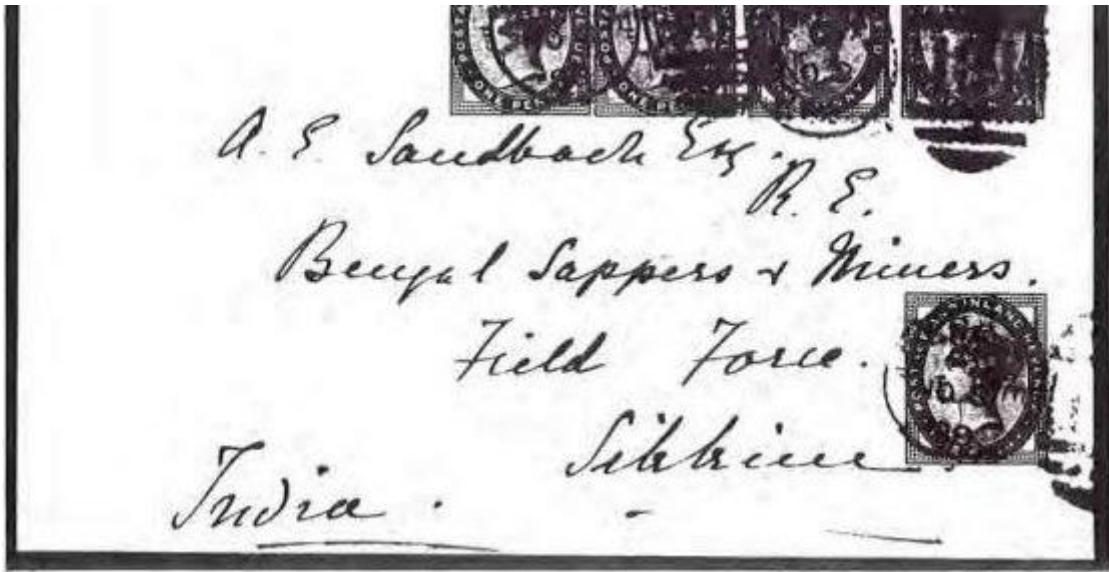 A. E. Sandbach Esq.
R. E.
Bengal Sappers & Miners.
Field Force.
Sikkim.
India.